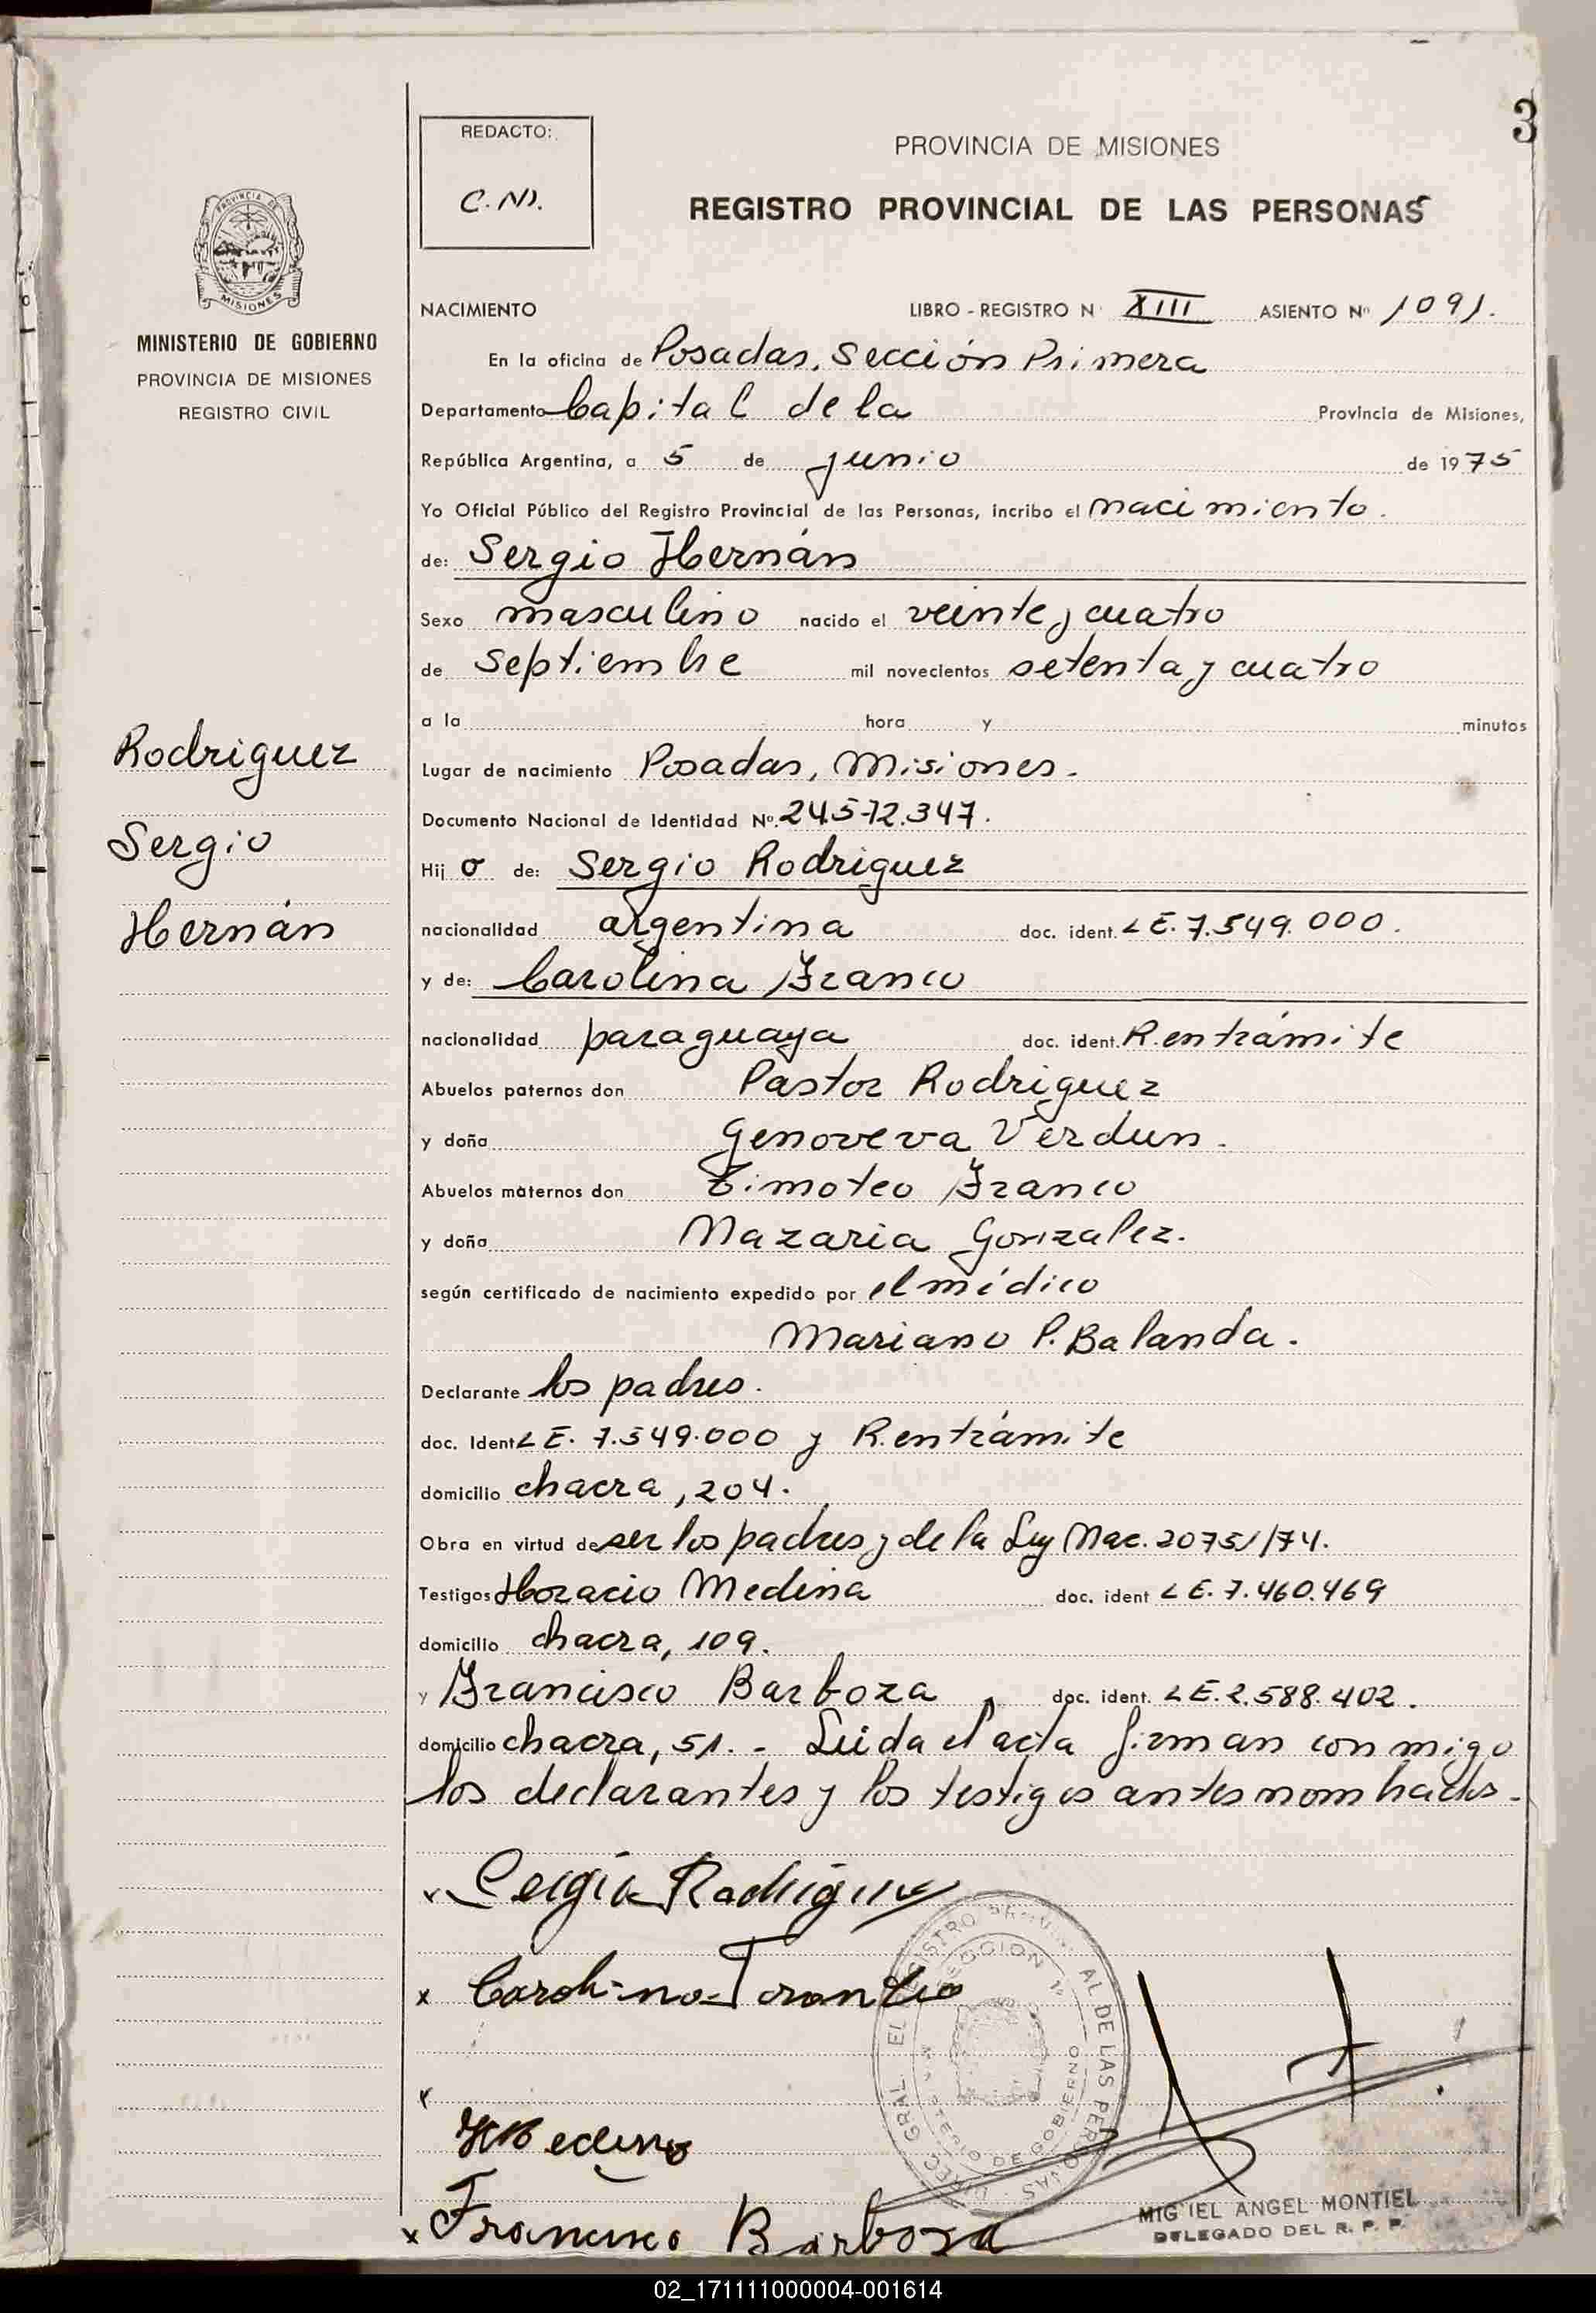 3
REDACTO:
C.N.
PROVINCIA DE MISIONES
REGISTRO PROVINCIAL DE LAS PERSONAS
PROVINCIA DE
MISIONES
MINISTERIO DE GOBIERNO
PROVINCIA DE MISIONES
REGISTRO CIVIL
Rodriguez
Sergio
Hernán
NACIMIENTO LIBRO - REGISTRO N XIII ASIENTO Nº 1091.
En la oficina de Posadas, Sección Primera
Departamento Capital de la Provincia de Misiones,
República Argentina, a 5 de junio de 1975
Yo Oficial Público del Registro Provincial de las Personas, incribo el nacimiento.
de: Sergio Hernán
Sexo masculino nacido el veinte y cuatro
de septiembre mil novecientos setenta y cuatro
a la hora y minutos
Lugar de nacimiento Posadas, Misiones.
Documento Nacional de Identidad Nº. 24.572.347.
Hij o de: Sergio Rodriguez
nacionalidad argentina doc. ident. L E. 7.549.000.
y de: Carolina Franco
nacionalidad paraguaya doc. ident. R. en trámite
Abuelos paternos don Pastor Rodriguez
y doña Genoveva Verdun.
Abuelos maternos don Timoteo Franco
y doña Nazaria Gonzalez.
según certificado de nacimiento expedido por el médico
Mariano P. Balanda.
Declarante los padres.
doc. Ident L E. 7.549.000 y R. en trámite
domicilio chacra, 204.
Obra en virtud de ser los padres y de la Ley Nac. 20751/74.
Testigos Horacio Medina doc. ident L E. 7.460.469
domicilio chacra, 109.
y Francisco Barboza, doc. ident. L E. 2.588.402.
domicilio chacra, 51. - Leida el acta firman conmigo
los declarantes y los testigos antes nombrados.
x Sergio Rodriguez
x Carolina Franco
x
H Medina
x Francisco Barboza
DIRECC. GRAL. EL REGISTRO AL DE LAS PERSONAS
SECCION 1ª
MINISTERIO DE GOBIERNO
MIGUEL ANGEL MONTIEL
DELEGADO DEL R. P. P.
02_171111000004-001614